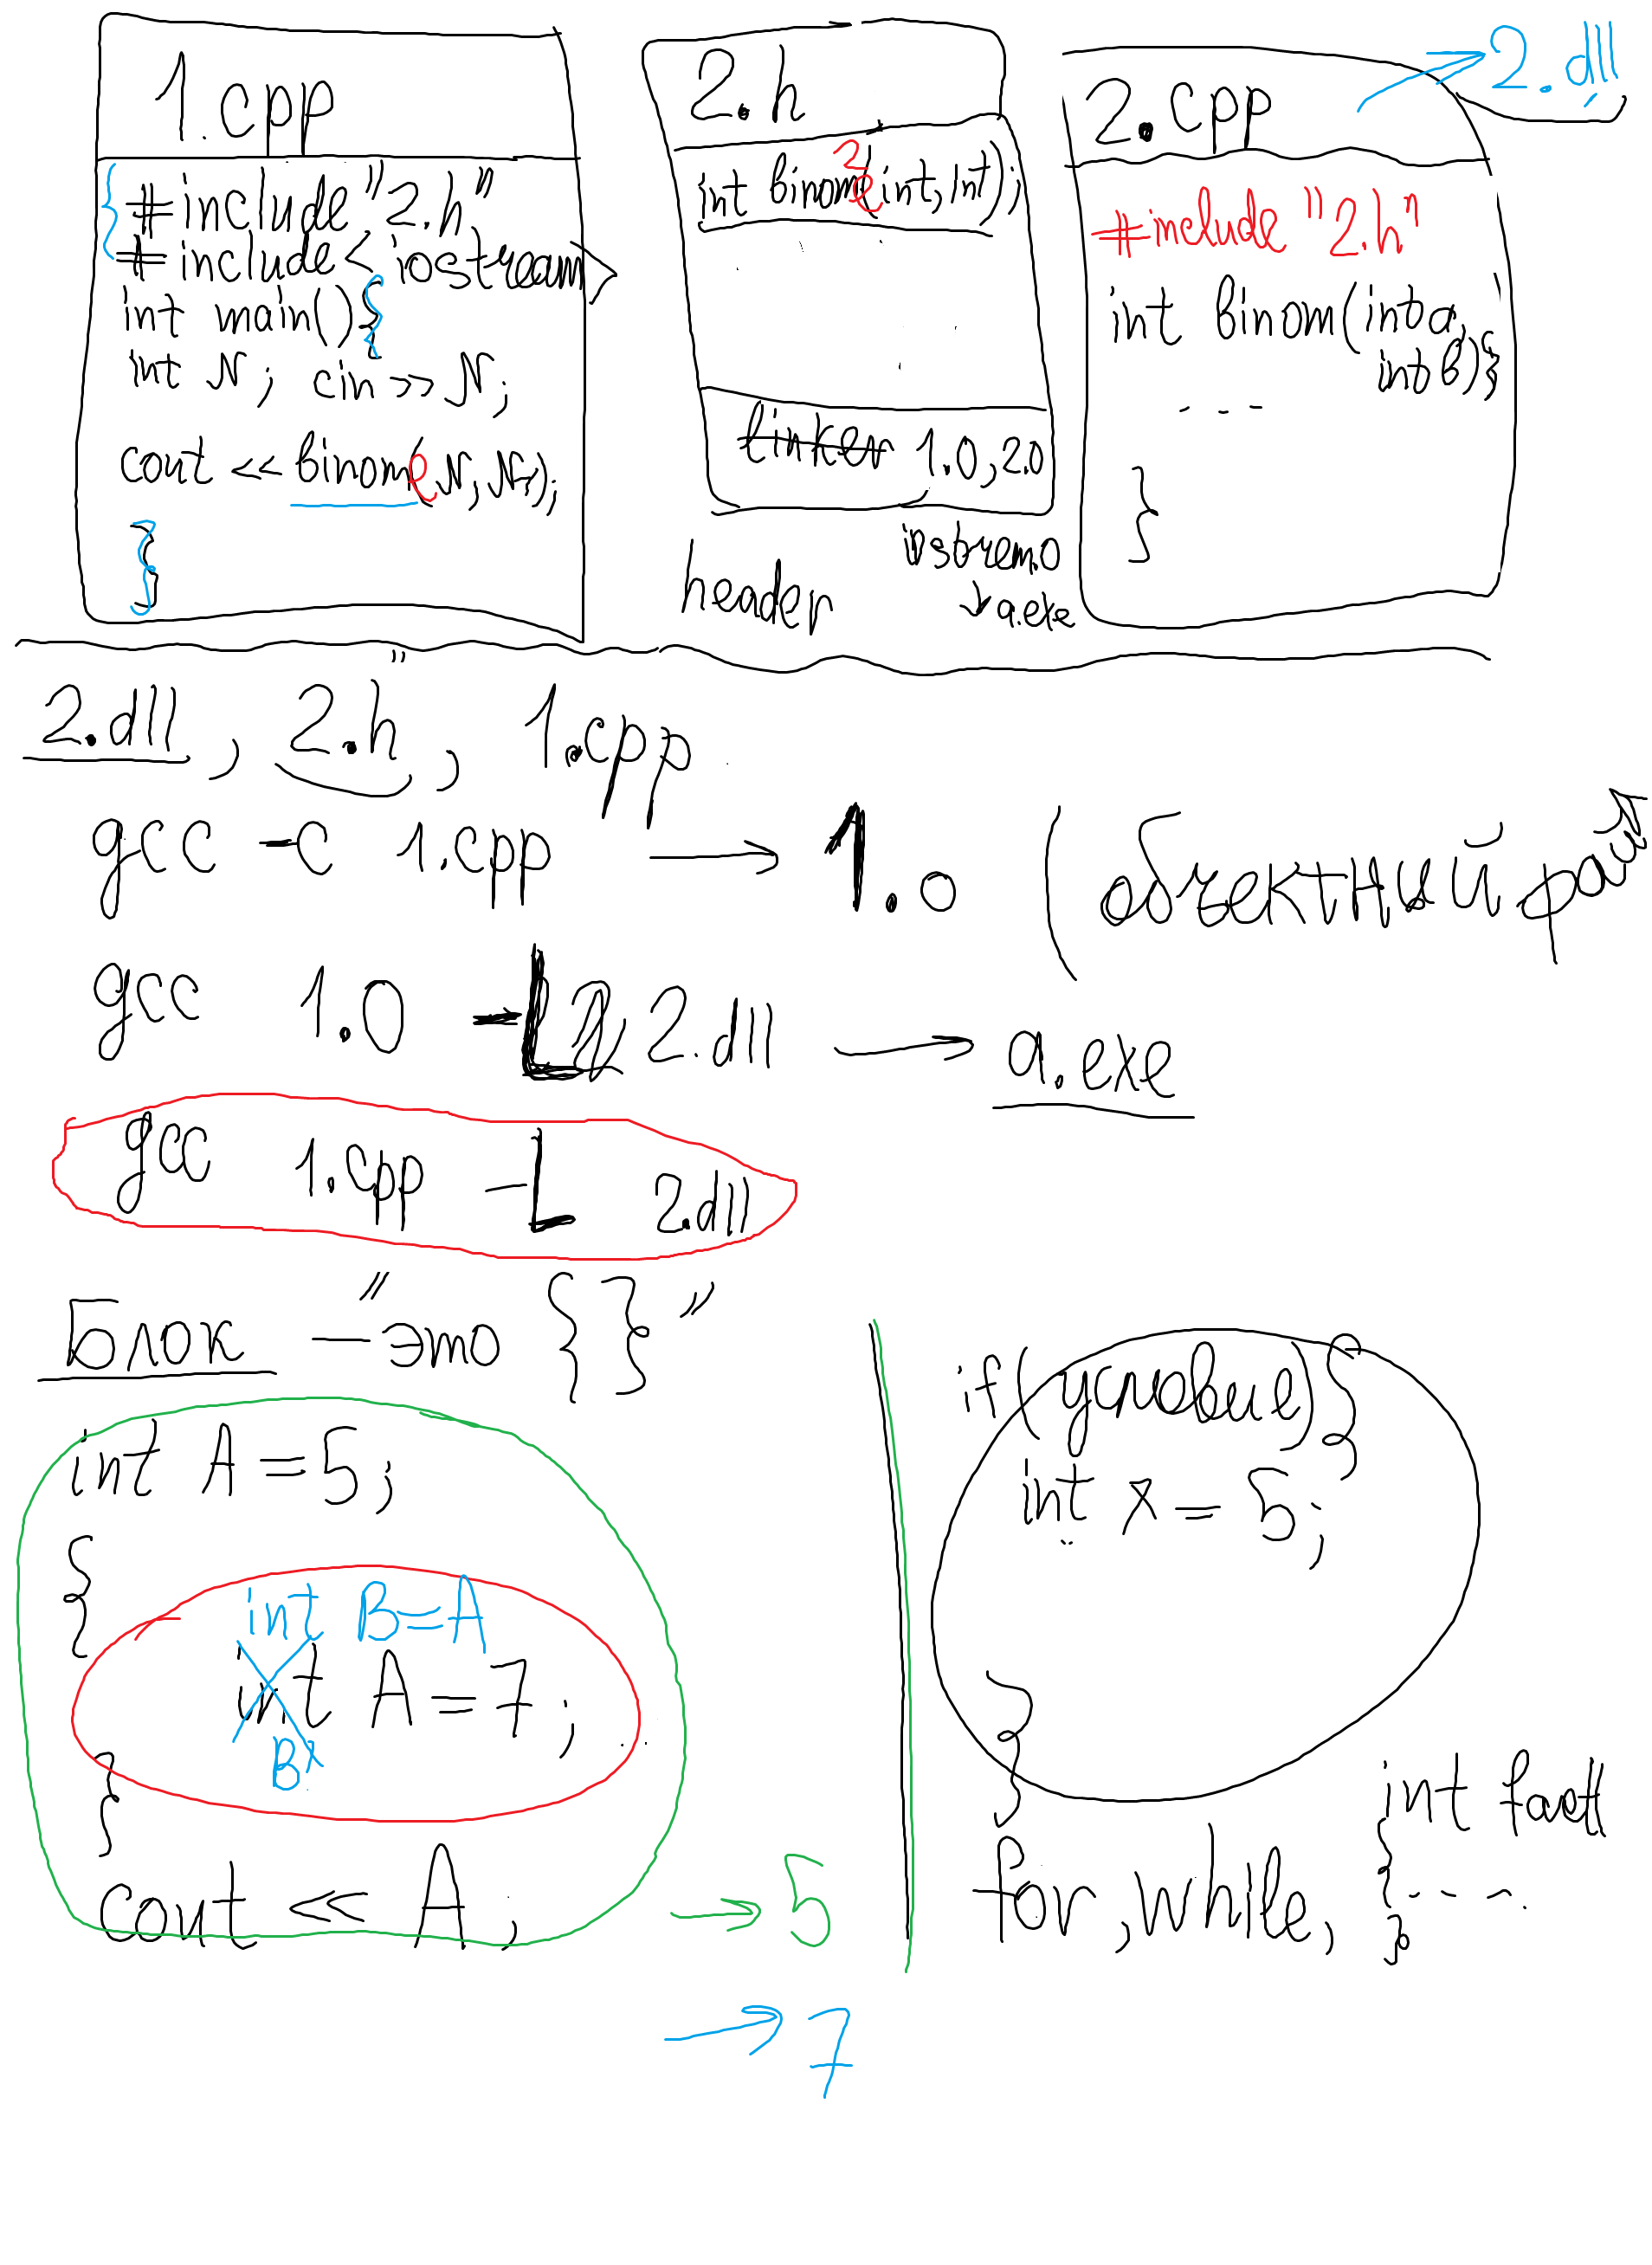 1.cpp
#include "2.h"
#include <iostream>
int main(){
int N; cin >> N;
cout << binome(N, N);
}
2.h
int binome(int, int);
linker 1.o, 2.o
header
a.exe
2.cpp
2.dll
#include "2.h"
int binom(int a,
int b){
...
}
2.dll, 2.h, 1.cpp
gcc -c 1.cpp → 1.o (объектный файл
gcc 1.o -L 2.dll → a.exe
gcc 1.cpp -L 2.dll
Блок — "это { }"
int A = 5;
{
int B=A
int A = 7;
B
}
cout << A; → 5
→ 7
if (условие) {
int x = 5;
}
for, while,
int fact
{ ....
}